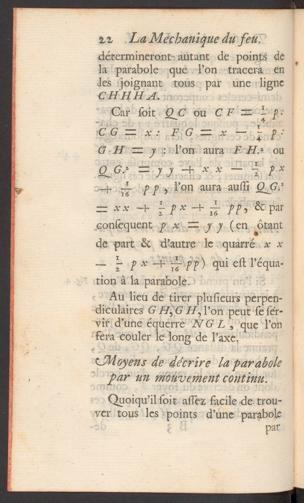 22 La Méchanique du feu.
détermineront autant de points de
la parabole que l'on tracera en
les joignant tous par une ligne
CHHHA.
Car soit QC ou CF = 1/4 p:
CG = x: FG = x — 1/4 p:
GH = y: l'on aura FH.² ou
QG.² = yy + xx — 1/2 px
+ 1/16 pp, l'on aura aussi QG.²
= xx + 1/2 px + 1/16 pp, & par
consequent px = yy (en ôtant
de part & d'autre le quarré xx
— 1/2 px + 1/16 pp) qui est l'équa-
tion à la parabole.
Au lieu de tirer plusieurs perpen-
diculaires GH, GH, l'on peut se ser-
vir d'une équerre NGL, que l'on
fera couler le long de l'axe.
Moyens de décrire la parabole
par un mouvement continu.
Quoiqu'il soit assez facile de trou-
ver tous les points d'une parabole
par